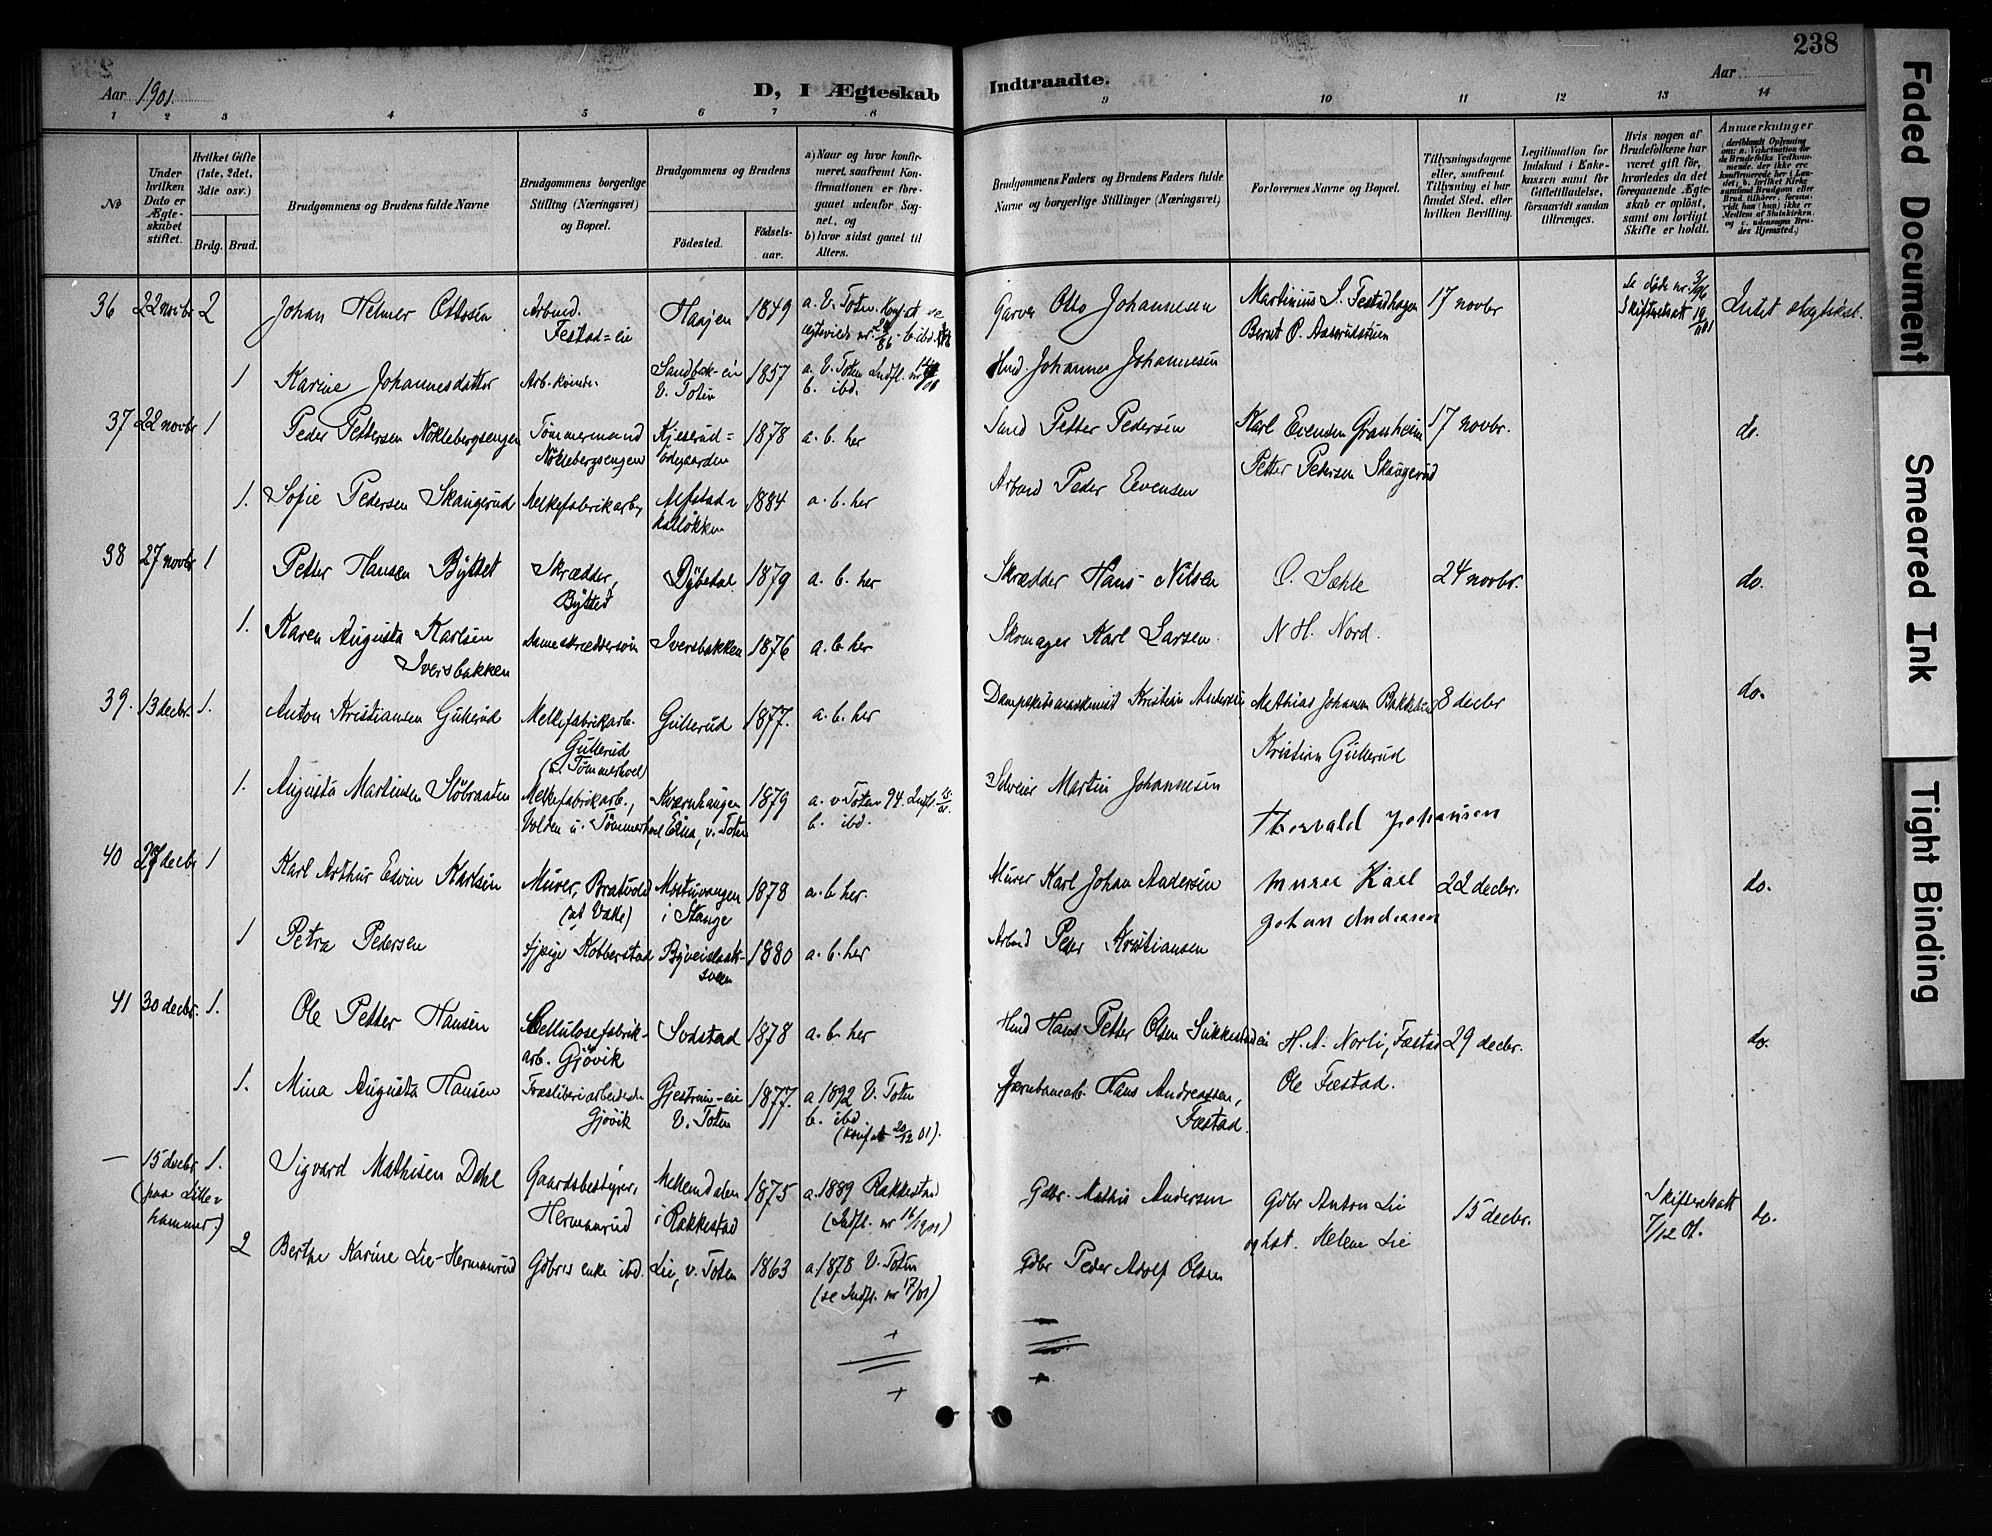 238
Aar 1901.
D, I Ægteskab Indtraadte.
Aar
1 2 3 4 5 6 7 8 9 10 11 12 13 14
No
Under hvilken Dato er Ægteskabet stiftet.
Hvilket Gifte (1ste, 2det, 3die osv.)
Brdg. Brud.
Brudgommens og Brudens fulde Navne
Brudgommens borgerlige Stilling (Næringsvei) og Bopæl.
Brudgommens og Brudens
Fødested.
Fødselsaar.
a) Naar og hvor konfirmeret, saafremt Konfirmationen er foregaaet udenfor Sognet, og
b) hvor sidst gaaet til Alters.
Brudgommens Faders og Brudens Faders fulde Navne og borgerlige Stillinger (Næringsvei)
Forlovernes Navne og Bopæl.
Tillysningsdagene eller, saafremt Tillysning ei har fundet Sted, efter hvilken Bevilling.
Legitimation for Indskud i Enkekassen samt for Giftetilladelse, forsaavidt saadan tiltrænges.
Hvis nogen af Brudefolkene har været gift før, hvorledes da det foregaaende Ægteskab er opløst, samt om lovligt Skifte er holdt.
Anmærkninger
36 22 novbr 2 Johan Helmer Ottosen Arbmd. Festad=ei Haajen 1849 a. V. Toten. Garver Otto Johannesen Martinius S. Festadhagen 17 novbr Skifteretsatt 19/11 01 Intet slegtskab.
Bernt O.
1 Karine Johannesdatter Arb.kvinde Sandbak-ei V. Toten 1857 a. V. Toten Indfl. nr
b. ibd. Hmd Johannes Johannesen
37 22 novbr 1 Peder Pettersen Nøklebergsengen Tømmermand Nøklebergsengen Kjeserud=ødegaarden 1878 a. b. her Smed Petter Pedersen Karl Evensen Granheim 17 novbr. do.
Petter Pedersen Skaugerud
1. Sofie Pedersen Skaugerud Melkefabrikarb. Alfstad= 1884 a. b. her Arbmd Peder Evensen
38 27 novbr 1 Petter Hansen Byttet Skrædder, Byttet Dybedal 1879 a. b. her Skrædder Hans Nilsen O. Sæhle 24 novbr. do.
1. Karen Augusta Karlsen Iversbakken Dameskrædderske Iversbakken 1876 a. b. her Skomager Karl Larsen. N. H. Nord.
39. 13 decbr. 1. Anton Kristiansen Gullerud Melkefabrikarb. Gullerud (u. Tømmerhol) Gullerud 1877. a. b. her Kristian Andersen Mathias Johansen 8 decbr do.
Kristian Gullerud
1. Augusta Martinsen Støbraaten Melkefabrikarb., Volden u. Tømmerhol Kværnhaugen Eina, v. Toten 1879 a. v. Toten 94.
b. ibd. Selveier Martin Johannesen
Thorvald Johansen
40 decbr 1 Karl Arthur Edvin Karlsen Murer, (at Valle) i Stange 1878 a. b. her. Murer Karl Johan Andersen Murer Karl Johan Andersen 22 decbr. do.
1 Petra Pedersen Kobberstad 1880 a. b. her Arbmd Peder Kristiansen
41 30 decbr. 1. Ole Petter Hansen Cellulosefabrikarb. Gjøvik Sodstad 1878 a. b. her Hmd Hans Petter Olsen H. A. Norli, Fæstad 29 decbr. do.
1. Mina Augusta Hansen Gjøvik Gjestrum-eie V. Toten 1877. a 1892 V. Toten
b. ibd
(konf. att 20/12 01). Jernbanearb. Hans Andreassen, Fæstad. Ole Fæstad.
— 15 decbr (paa Lillehammer.) 1. Sigvard Mathisen Dahl Gaardsbestyrer, Hermanrud Mellemdalen i Rakkestad 1875 a. 1889 Rakkestad
(Indfl. nr 16/1901) Gdbr. Mathis Andersen Gdbr Anton Lie 15 decbr. Skifteretsatt 7/12 01. do.
og hst. Helene Lie
2 Berthe Karine Lie-Hermanrud Gdbrs enke ibd. Lie, v. Toten 1863 a 1878 V. Toten
(se Indfl. nr 17/01) Gdbr Peder Adolf Olsen
Faded Document
Smeared Ink
Tight Binding